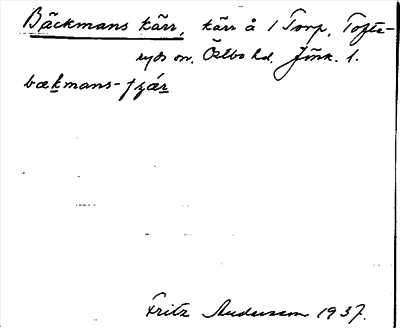 Bäckmans kärr, kärr å 1 Torp, Tofte-
ryds sn, Östbo hd, Jönk. l.
bækmans-
Fritz Andersson 1937.